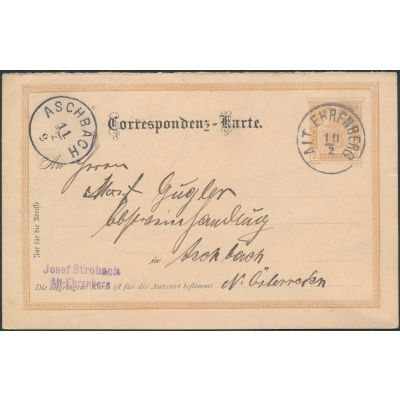 ASCHBACH
11
9
ALT EHRENBERG
10
Correspondenz-Karte.
An Herrn
Gugler
Obstweinhandlung
in Aschbach
N. Österreich
Nur für die Adresse
Josef Strobach
Alt-Ehrenberg
Die angebogene Karte ist für die Antwort bestimmt